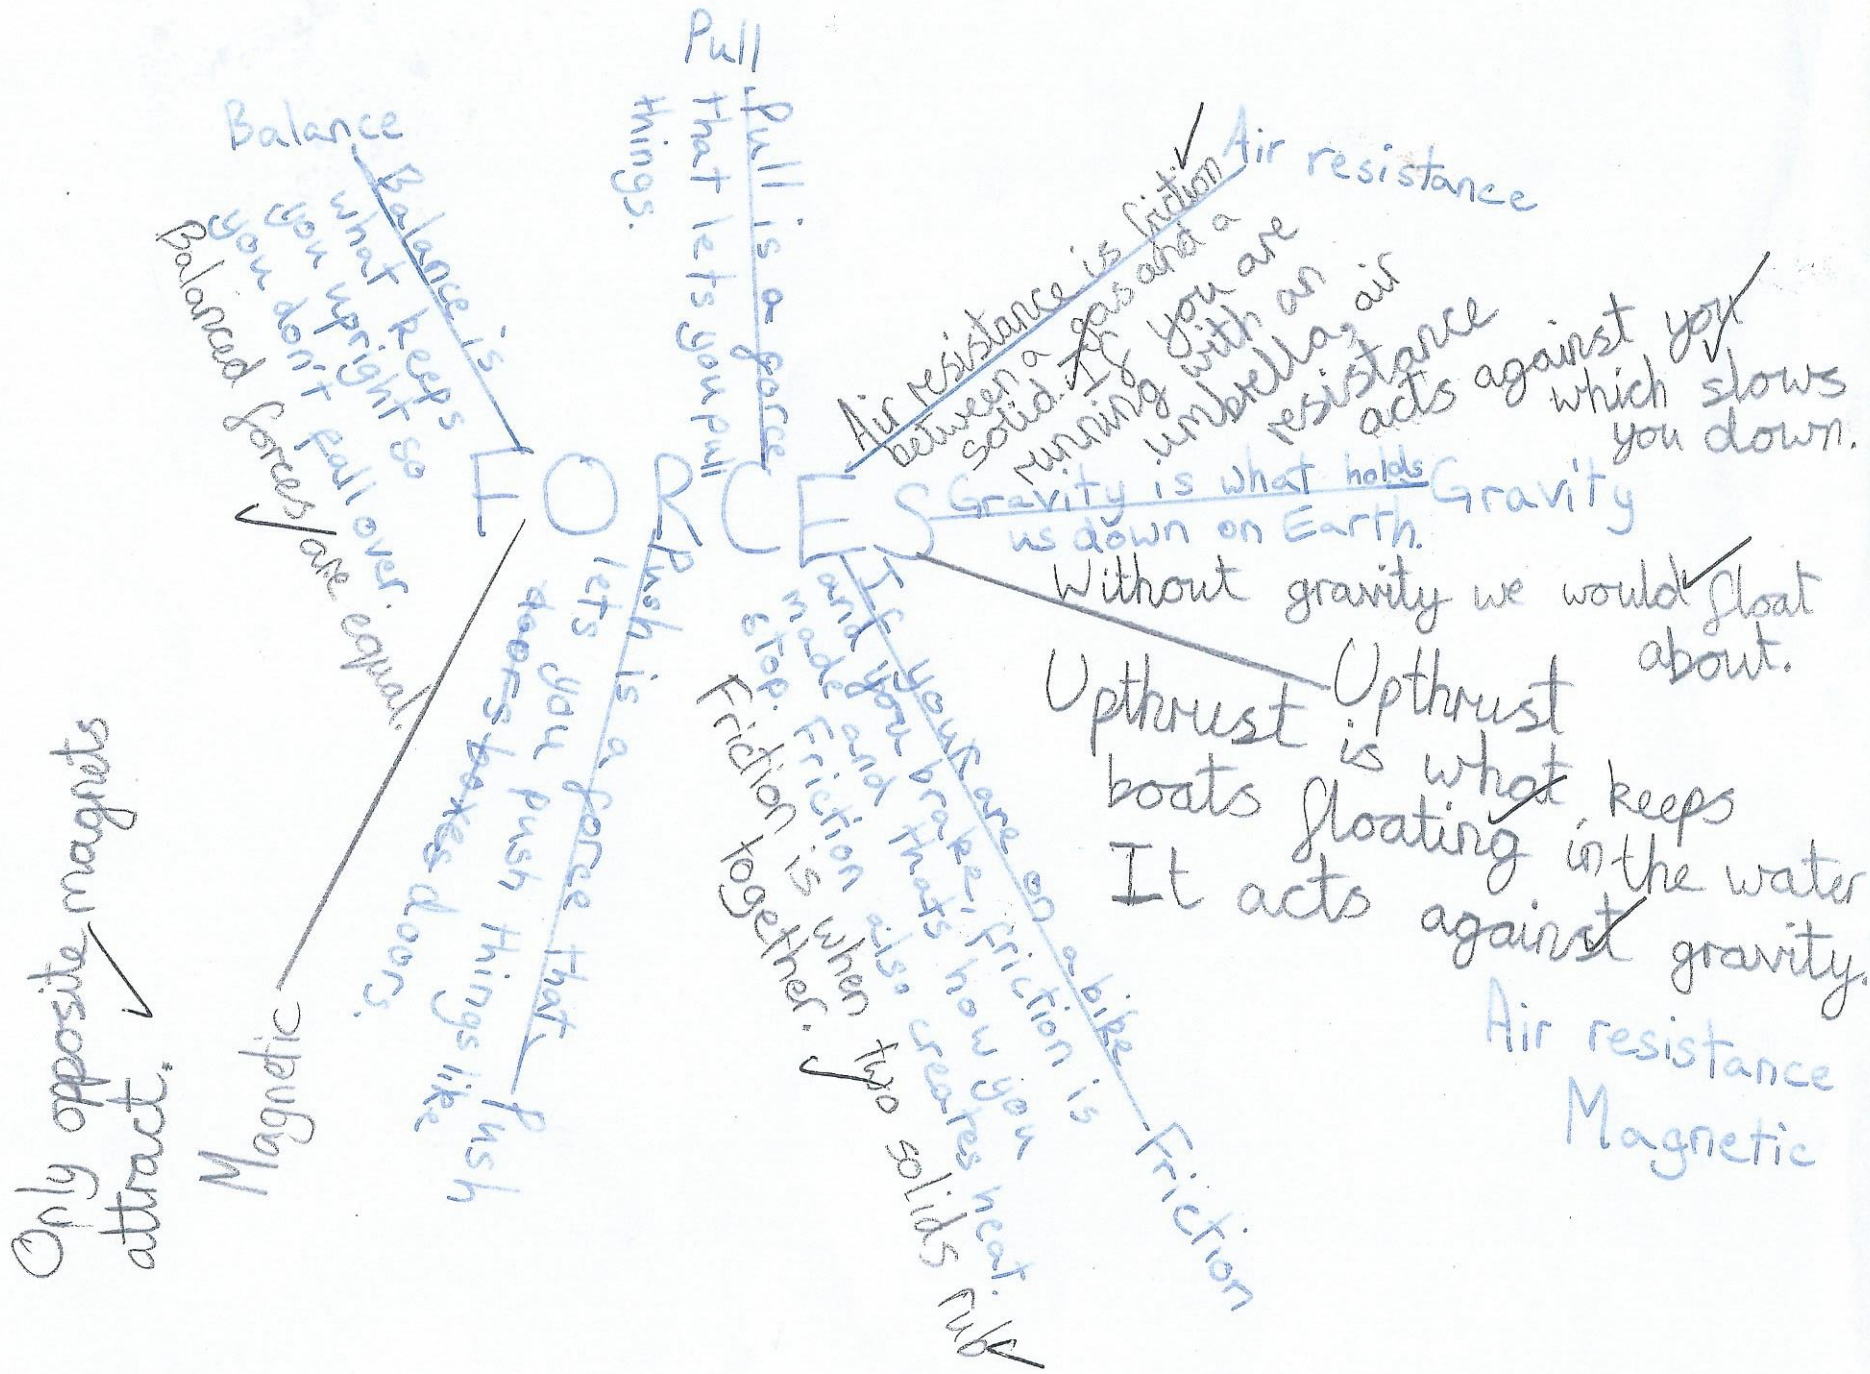 Pull
Pull is a force
that lets you pull
things.
Balance
Balance is
what keeps
you upright so
you don't fall over.
Balanced forces are equal.
Air resistance
Air resistance is friction
between a gas and a
solid. If you are
running with an
umbrella, air
resistance
acts against you
which slows
you down.
FORCES
Gravity is what holds
us down on Earth.
Gravity
Without gravity we would float
about.
Upthrust
Upthrust is what keeps
boats floating in the water
It acts against gravity.
Air resistance
Magnetic
Friction
If your are on a bike
and you brake, friction is
made and thats how you
stop. Friction also creates heat.
Friction is when two solids rub
together.
Push
Push is a force that
lets you push things like
doors boxes doors.
Magnetic
Only opposite magnets
attract.